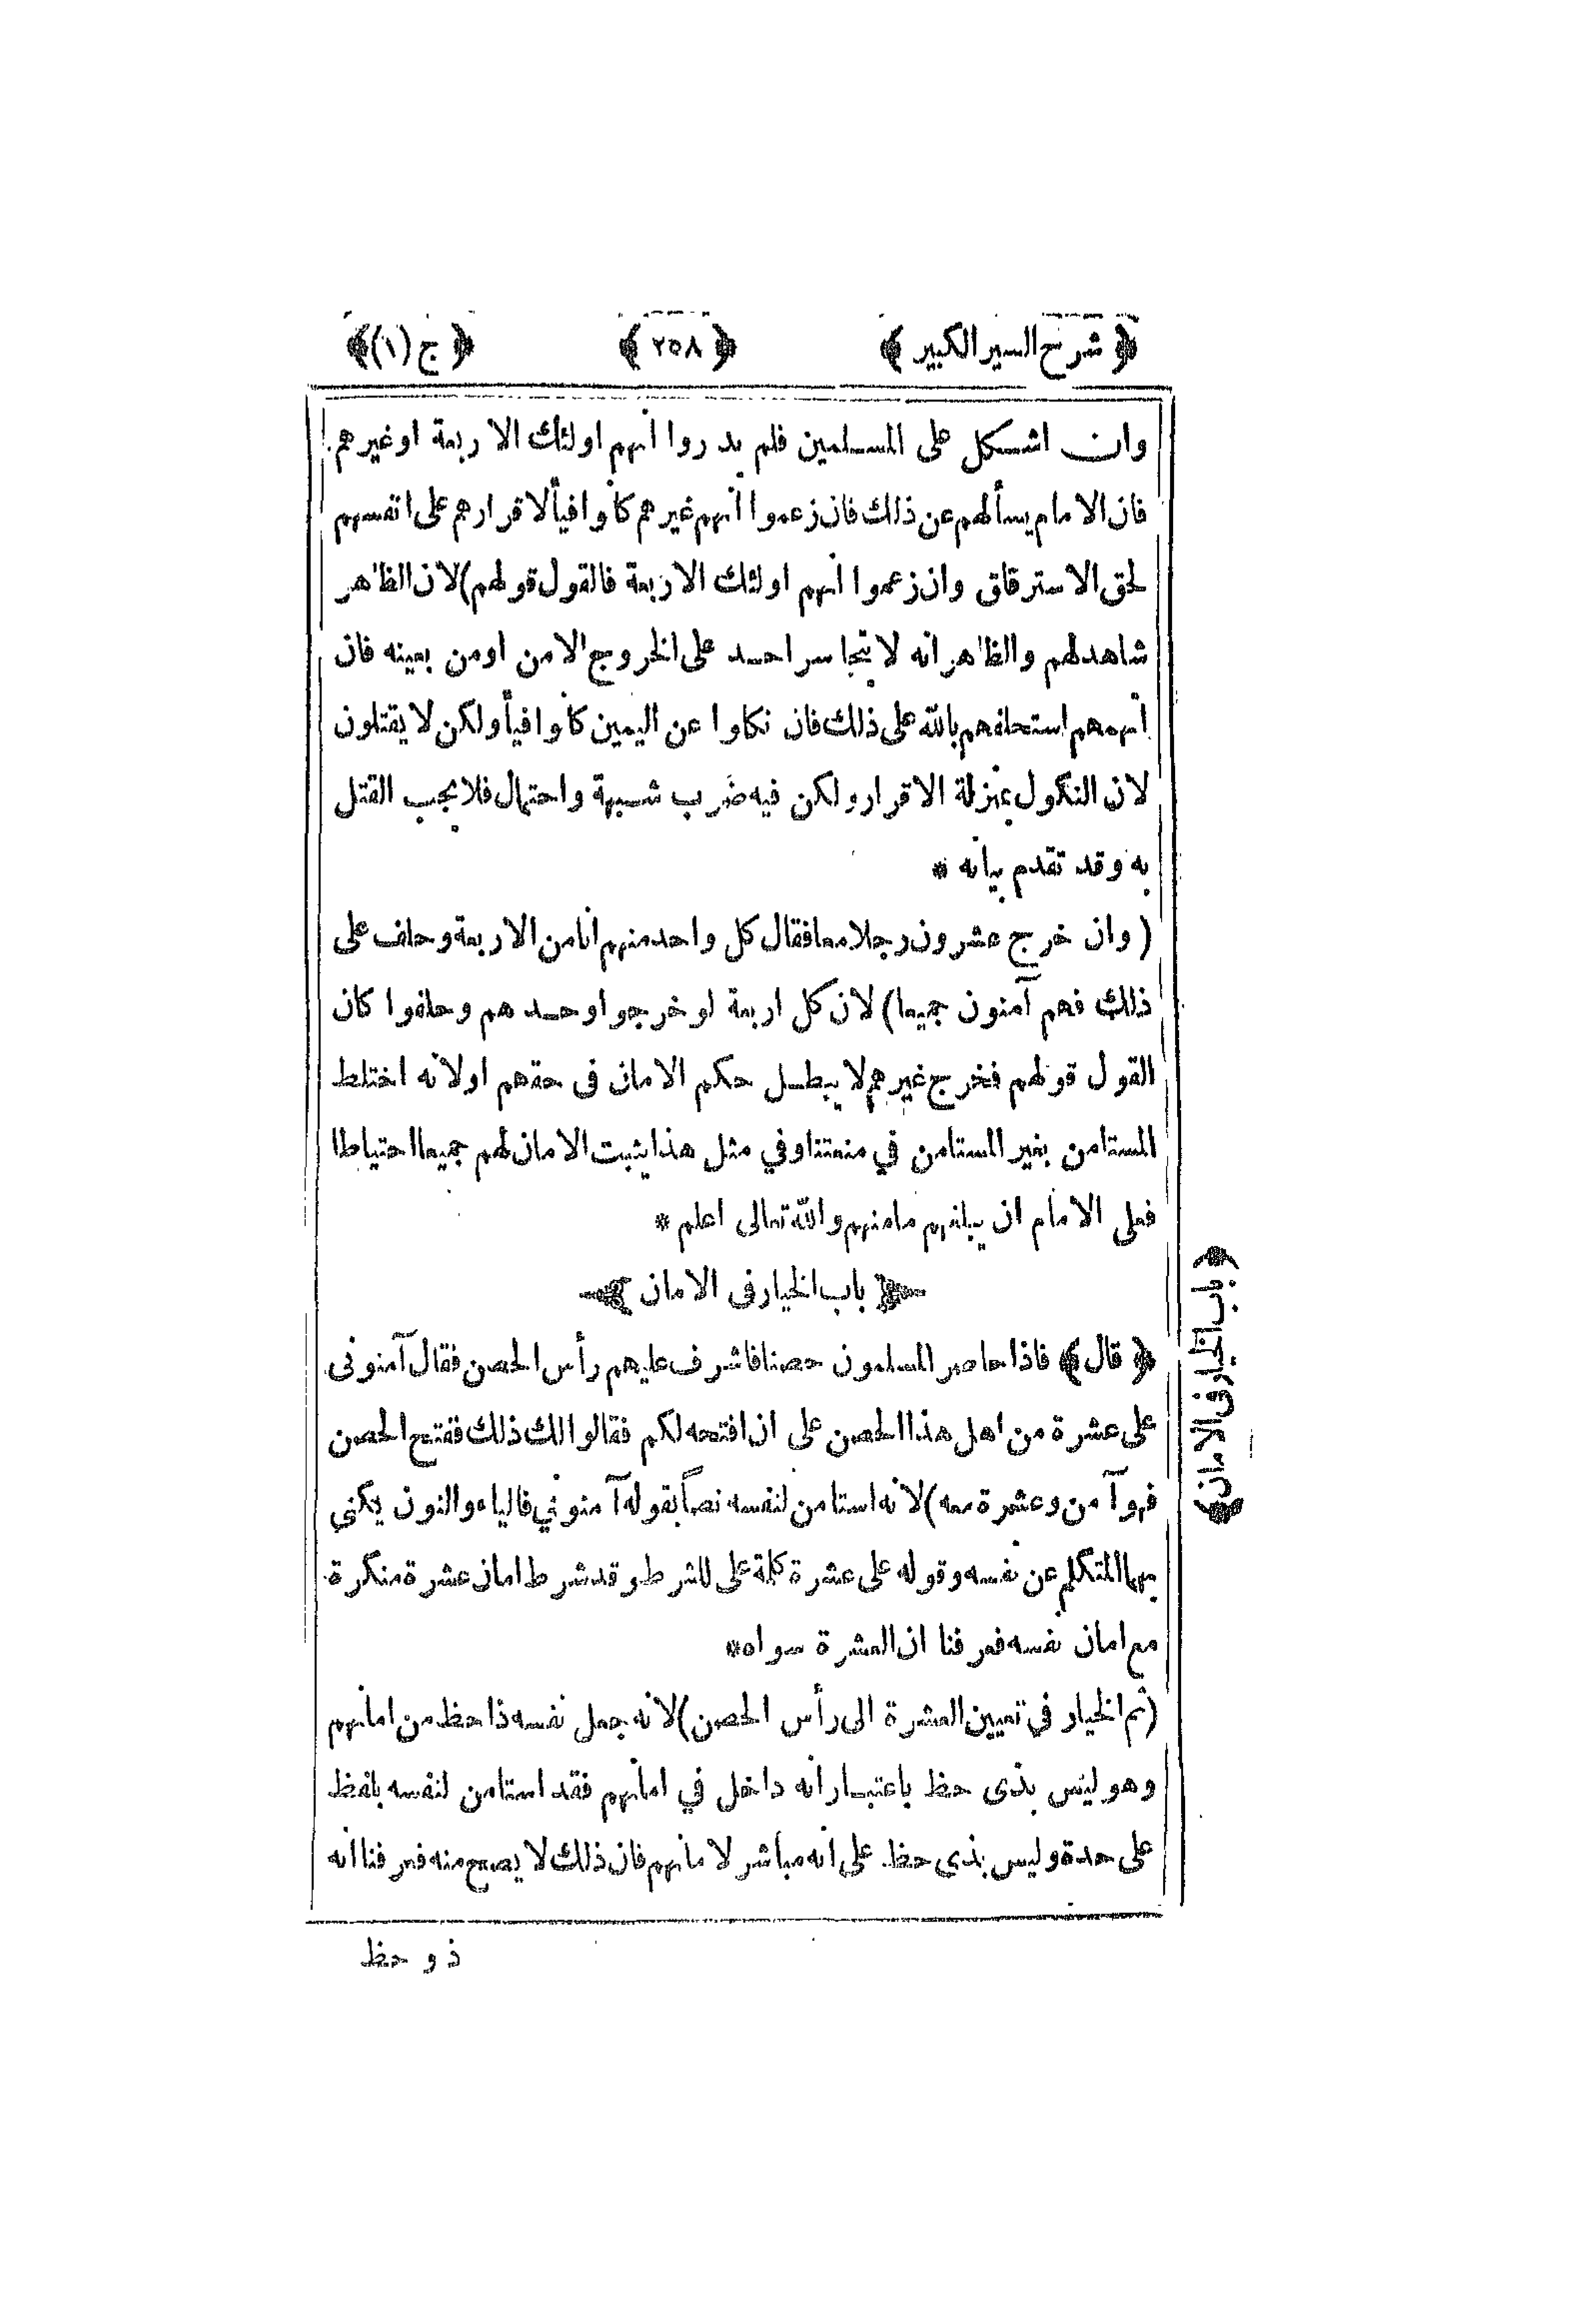 ﴿ شرح السير الكبير ﴾ ﴿ ٢٥٨ ﴾ ﴿ ج (١) ﴾
وان اشكل على المسلمين فلم يدروا أنهم اولئك الاربعة اوغيرهم
فان الامام يسألهم عن ذلك فان زعموا انهم غيرهم كانوا فيأ لاقرارهم على انفسهم
لحق الاسترقاق وان زعموا انهم اولئك الاربعة فالقول قولهم) لان الظاهر
شاهد لهم والظاهر انه لا يتجاسر احد على الخروج الا من اومن بعينه فان
اتهمهم استحلفهم بالله على ذلك فان نكلوا عن اليمين كانوا فيأ ولكن لا يقتلون
لان النكول بمنزلة الاقرار ولكن فيه ضرب شبهة واحتمال فلا يجب القتل
به وقد تقدم بيانه *
( وان خرج عشرون رجلا معا فقال كل واحد منهم انا من الاربعة وحلف على
ذلك فهم آمنون جميعا) لان كل اربعة لو خرجوا وحدهم وحلفوا كان
القول قولهم فخرج غيرهم لا يبطل حكم الامان فى حقهم او لانه اختلط
المستامن بغير المستامن في منعتنا وفي مثل هذا يثبت الامان لهم جميعا احتياطا
فعلى الامام ان يبلغهم مامنهم والله تعالى اعلم *
﴿ باب الخيار فى الامان ﴾
﴿ باب الخيار فى الامان ﴾
﴿ قال ﴾ فاذا حاصر المسلمون حصنا فاشرف عليهم رأس الحصن فقال آمنونى
على عشرة من اهل هذا الحصن على ان افتحه لكم فقالوا لك ذلك ففتح الحصن
فهو آمن وعشرة معه) لانه استامن لنفسه نصاً بقوله آمنوني فالياء والنون يكنى
بهما المتكلم عن نفسه وقوله على عشرة كلمة على للشرط وقد شرط امان عشرة منكرة
مع امان نفسه فعرفنا ان العشرة سواه *
(ثم الخيار في تعيين العشرة الى رأس الحصن) لانه جعل نفسه ذا حظ من امانهم
وهو ليس بذى حظ باعتبار انه داخل في امانهم فقد استامن لنفسه بلفظ
على حدة وليس بذي حظ على انه مباشر لامانهم فان ذلك لا يصح منه فعرفنا انه
ذو حظ